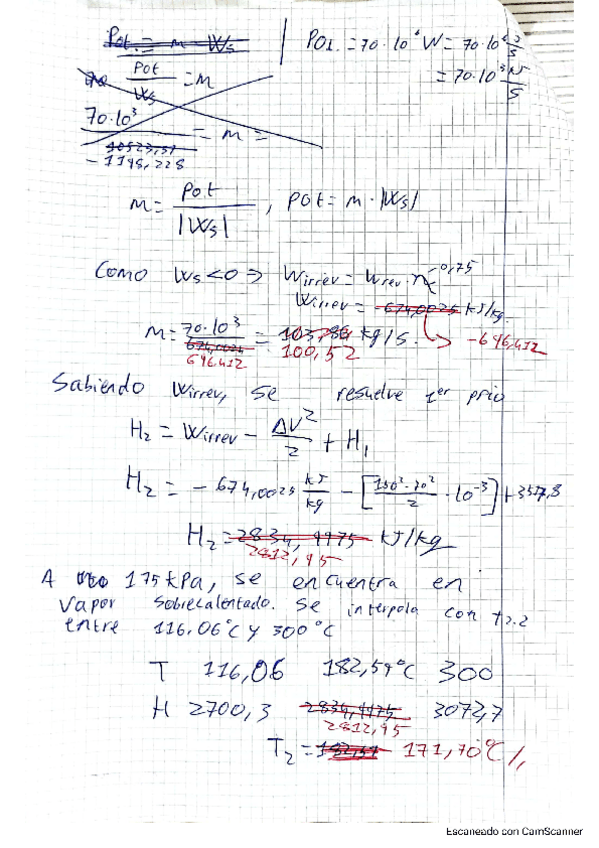 Pot. = m Ws | Pot. = 70·10⁶ W = 70·10⁶ J/s
Pot/Ws = m = 70·10³ kJ/s
70·10³/10523,57 = m =
-1198,228
m = Pot/|Ws| , POt = m·|Ws|
Como Ws<0 ⇒ Wirrev = Wrev·η 0,75
Wirrev = -674,0025 kJ/kg. → -696,412
m = 70·10³/674,0025 = 103,86 kg/s.
696,412 100,52
Sabiendo Wirrev, se resuelve 1er prio
H₂ = Wirrev - ΔV²/2 + H₁
H₂ = -674,0025 kJ/kg - [150²-70²/2 · 10⁻³] + 3517,8
H₂ = 2834,9975 kJ/kg
2812,95
A 175 kPa, se encuentra en
vapor sobrecalentado. Se interpola con t2.2
entre 116.06°C y 300°C
T 116,06 182,59°C 300
H 2700,3 2834,9975 3072,7
2812,95
T₂ = 182,59 171,70°C//
Escaneado con CamScanner